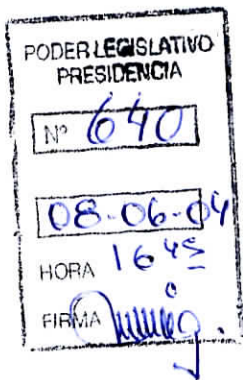 PODER LEGISLATIVO
PRESIDENCIA
Nº 640
08-06-04
HORA 16 45
FIRMA